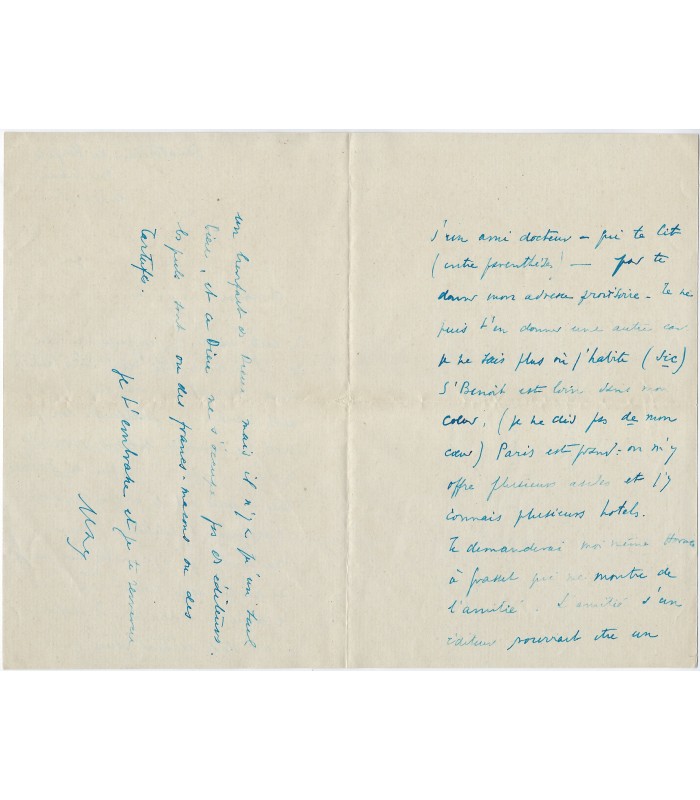 d'un ami docteur — qui te lit
(entre parenthèses! — pour te
donner mon adresse provisoire. Je ne
puis t'en donner une autre car
je ne sais plus où j'habite (sic)
S' Benoit est loin dans mon
cœur, (je ne dis pas de mon
cœur) Paris est grand: on m'y
offre plusieurs asiles et j'y
connais plusieurs hotels.
Je demanderai moi même
à Grasset qui me montre de
l'amitié. L'amitié d'un
éditeur pourrait être un
un bienfait de Dieu mais il n'y a qu'un seul
Dieu, et ce Dieu ne s'occupe pas des éditeurs.
lesquels sont ou des francs-maçons ou des
tartufes.
Je t'embrasse et je te
Max